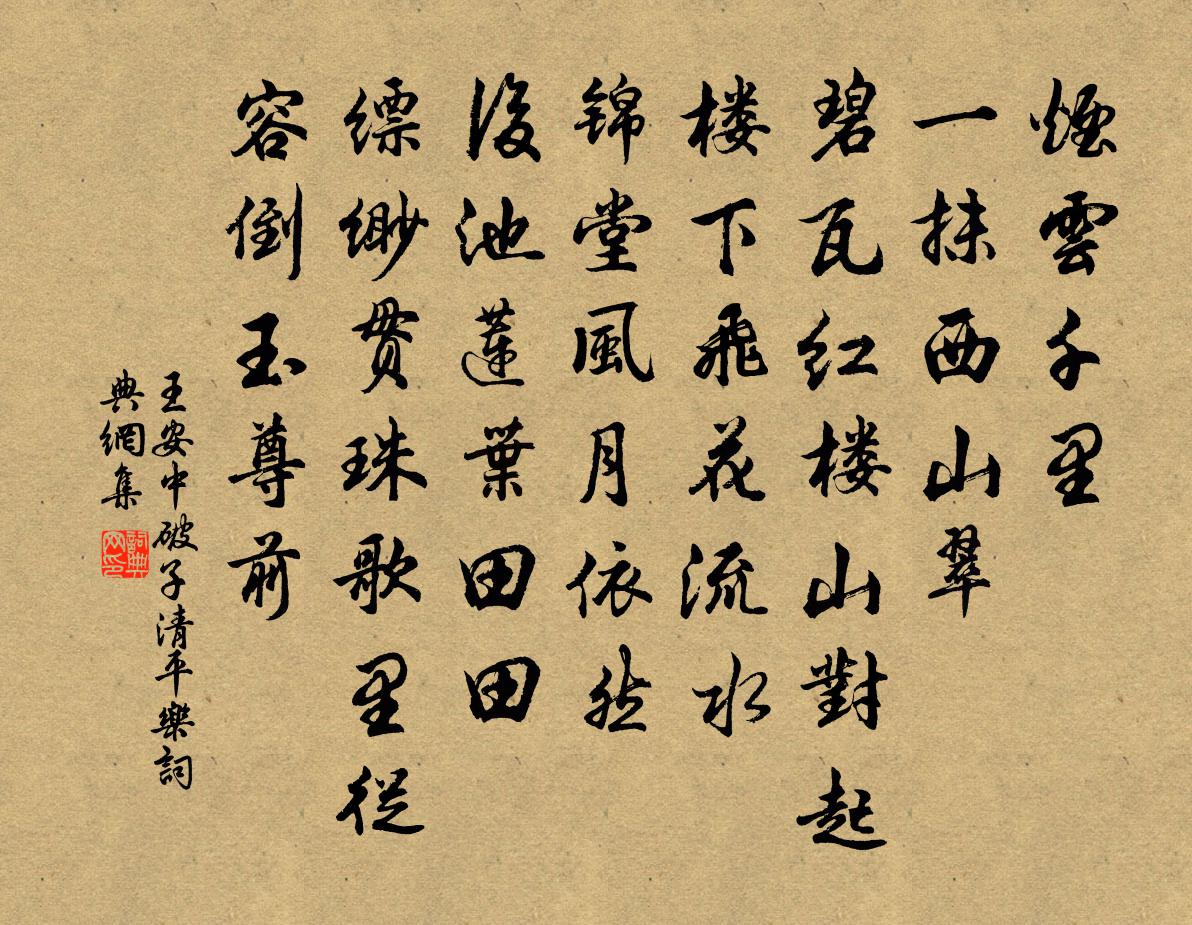 煙雲千里
一抹西山翠
碧瓦红楼山對起
楼下飛花流水
锦堂風月依然
後池蓮葉田田
缥缈贯珠歌里從
容倒玉尊前
王安中破子清平樂詞
典網集
詞典網印